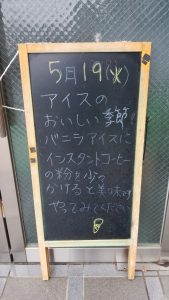 5月19(火)
アイスの
おいしい季節!
バニラアイスに
インスタントコーヒー
の粉を少々
かけると美味です
やってみてください